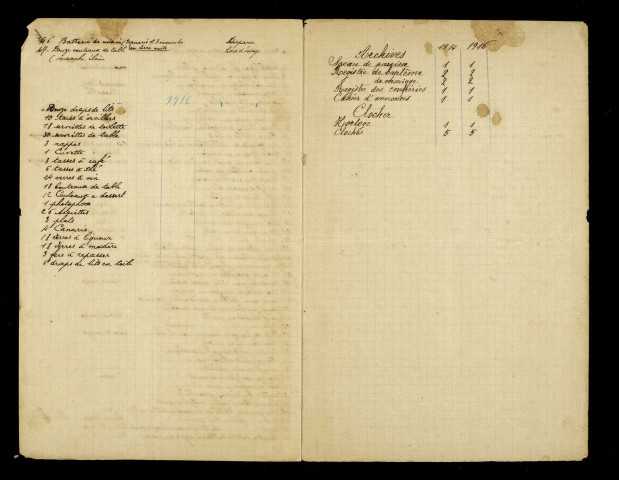 Batterie de
Douze couteaux de table
1916
Douze draps de lits
10 Taies d'oreillers
18 serviettes de toilette
30 serviettes de table
3 nappes
1 Cuvette
8 tasses à café
6 tasses à thé
24 verres à vin
18 Couteaux de table
12 Couteaux à dessert
1 photophore
26 Assiettes
3 plats
4 Canaris
18 verres à liqueur
18 verres à madère
3 fers à repasser
6 draps de lits en toile
Archives 1914 1916
Sceau de paroisse 1 1
Registre de baptême 2 2
de mariage 2 2
Registre des confréries 1 1
Cahier d'annonces 1 1
Clocher
Horloge 1 1
Cloches 5 5